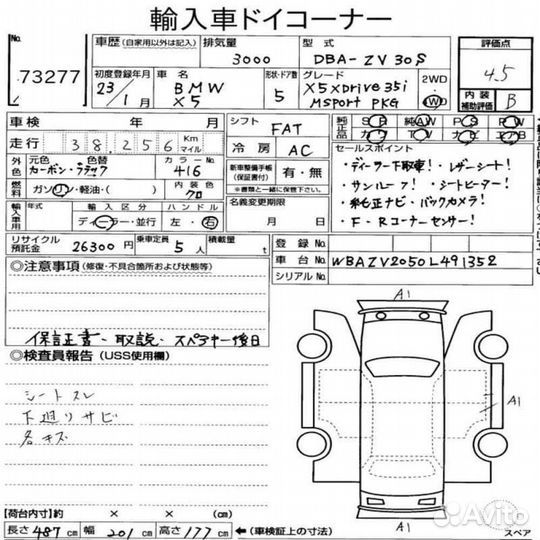 輸入車ドイコーナー
No. 73277
車歴 (自家用以外は記入)
排気量 3000
型式 DBA-ZV30S
評価点 4.5
初度登録年月 23年 1月
車名 BMW X5
形状・ドア数 5
グレード X5 xDrive 35i MSport PKG
2WD・4WD
内装補助評価 B
車検 年 月
シフト FAT
純正品 SR AW PS PW
カワ TV ナビ エアB
走行 38,256 Km マイル
冷房 AC
セールスポイント
外色 元色 色替 カーボンブラック
カラーNo. 416
新車整備手帳 (保証書付) 有・無
(※書類と一緒に保管しております)
・ディーラー下取車!・レザーシート!
・サンルーフ!・シートヒーター!
・純正ナビ・バックカメラ!
・F・Rコーナーセンサー!
燃料 ガソリン・軽油・( )
内装色 クロ
名義変更期限 月 日
輸入車用 年式 輸入区分 ハンドル
ディーラー・並行 左・右
リサイクル預託金 26300円
乗車定員 5人
積載量 t
登録No.
車台No. WBAZV2050L491352
シリアルNo.
◎注意事項 (修復・不具合箇所および状態等)
保証書・取説・スペアキー後日
◎検査員報告 (USS使用欄)
シートスレ
下廻りサビ
各キズ
A1
A1
A1
【荷台内寸】約 × × (cm)
長さ 487 cm 幅 201 cm 高さ 177 cm ←(車検証上の寸法)
スペア
Avito